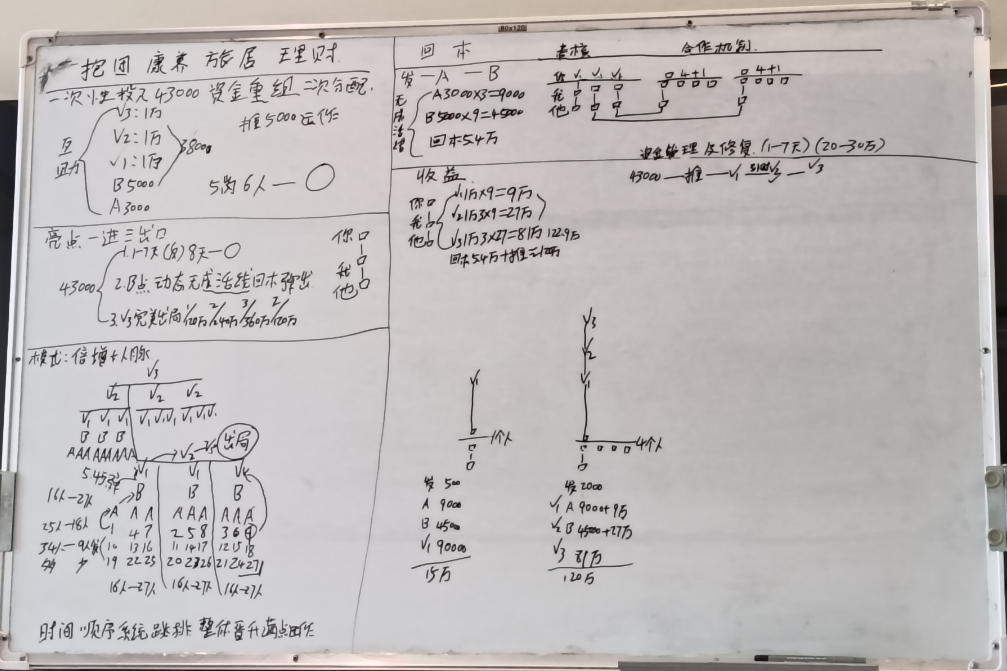 抱团 康养 旅居 理财
一次性投入43000 资金重组 二次分配.
V3:1万
V2:1万
V1:1万
B5000
A3000
互助
38000
推5000运作
5沟6人—○
亮点一进三出口
43000
1.1-7天(反)8天—○
2.B点动态无成活线回本弹出
3.V3完美出局
你口
我口
他口
模式:倍增+人脉
V3
V2 V2 V2
V1 V1 V1 V1 V1 V1 V1 V1 V1
B B B
AAAAAAAAA
V1 V2 V3 出局
V1 V1 V1
B B B
A A A A A A A A A
1 4 7 2 5 8 3 6 9
10 13 16 11 14 17 12 15 18
19 22 25 20 23 26 21 24 27
16人—27人 16人—27人 16人—27人
16人—27人
时间顺序系统跳排 整体晋升
回本
发—A—B
A3000×3=9000
B5000×9=45000
回本5.4万
考核
合作机制.
你 V1 V1 V1
我
他
4+1 4+1
资金管理及修复.(1-7天)(20-30万)
43000—推—V1
收益
你口
我口
他口
V11万×9=9万
V21万3×9=27万
V31万3×27=81万 122.9万
V1
1个人
发500
A 9000
B 45000
V1 90000
15万
V3
V2
V1
4个人
发2000
V1 A 9000+9万
V2 B 45000+27万
V3 81万
120万